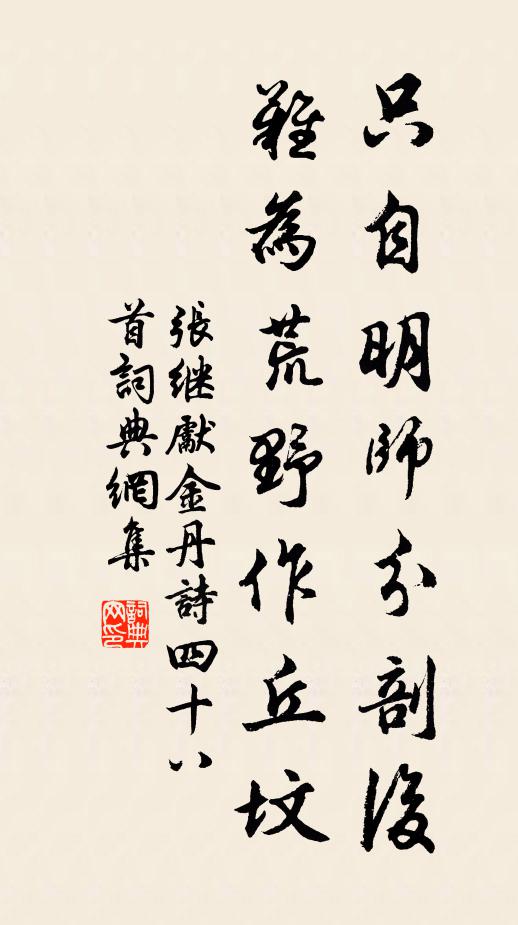 只自明師分剖後
難為荒野作丘墳
張継獻金丹詩四十八
首詞典網集
詞典網印